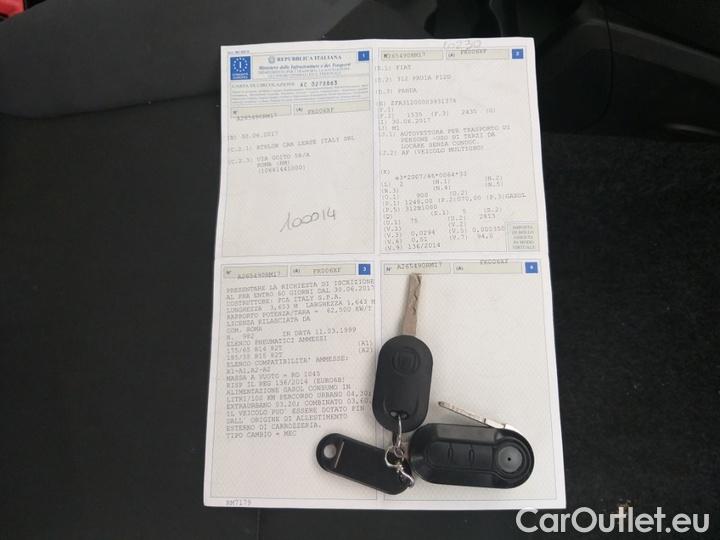 10230
1
REPUBBLICA ITALIANA
Ministero delle Infrastrutture e dei Trasporti
CARTA DI CIRCOLAZIONE AC 0272863
N° A265490RM17 (A) FK006XF
(B) 30.06.2017
(C.2.1) ATHLON CAR LEASE ITALY SRL
(C.2.3) VIA GOITO 58/A
ROMA (RM)
(10641441000)
100014
2
A265490RM17 (A) FK006XF
(D.1) FIAT
(D.2) 312 PXD1A P12D
(D.3) PANDA
(F.1) 1535 (F.2) 2435 (G)
(I) 30.06.2017
(J) M1
(J.1) AUTOVETTURA PER TRASPORTO DI
PERSONE -USO DI TERZI DA
LOCARE SENZA CONDUC.
(J.2) AF (VEICOLO MULTIUSO)
(K)
e3*2007/46*0064*33
(L) 2 (N.1) (N.2)
(N.3) (N.4) (N.5)
(O.1) 900 (O.2)
(P.1) 1248,00 (P.2)070,00 (P.3)GASOL
(P.5) 312B1000
(Q) (S.1) 5 (S.2)
(U.1) 75 (U.2) 2813
(V.1) (V.2)
(V.3) 0,0294 (V.5) 0,000350
(V.6) 0,51 (V.7) 94,0
(V.9) 136/2014
IMPOSTA
DI BOLLO
ASSOLTA
IN MODO
VIRTUALE
3
N° A265490RM17 (A) FK006XF
PRESENTARE LA RICHIESTA DI ISCRIZIONE
AL PRA ENTRO 60 GIORNI DAL 30.06.2017
COSTRUTTORE: FCA ITALY S.P.A.
LUNGHEZZA 3,653 M LARGHEZZA 1,643 M
RAPPORTO POTENZA/TARA = 62,500 KW/T
LICENZA RILASCIATA DA
COM. ROMA
N. 982 IN DATA 11.03.1999
ELENCO PNEUMATICI AMMESSI
175/65 R14 82T (A1)
185/55 R15 82T (A2)
ELENCO COMPATIBILITA' AMMESSE:
A1-A1,A2-A2
MASSA A VUOTO = KG 1045
RISP IL REG 136/2014 (EURO6B)
ALIMENTAZIONE GASOL CONSUMO IN
LITRI/100 KM PERCORSO URBANO 04,30;
EXTRAURBANO 03,20; COMBINATO 03,60
IL VEICOLO PUO' ESSERE DOTATO FIN
DALL' ORIGINE DI ALLESTIMENTO
ESTERNO DI CARROZZERIA.
TIPO CAMBIO = MEC
RM7179
4
N° A265490RM17 (A) FK006XF
CarOutlet.eu